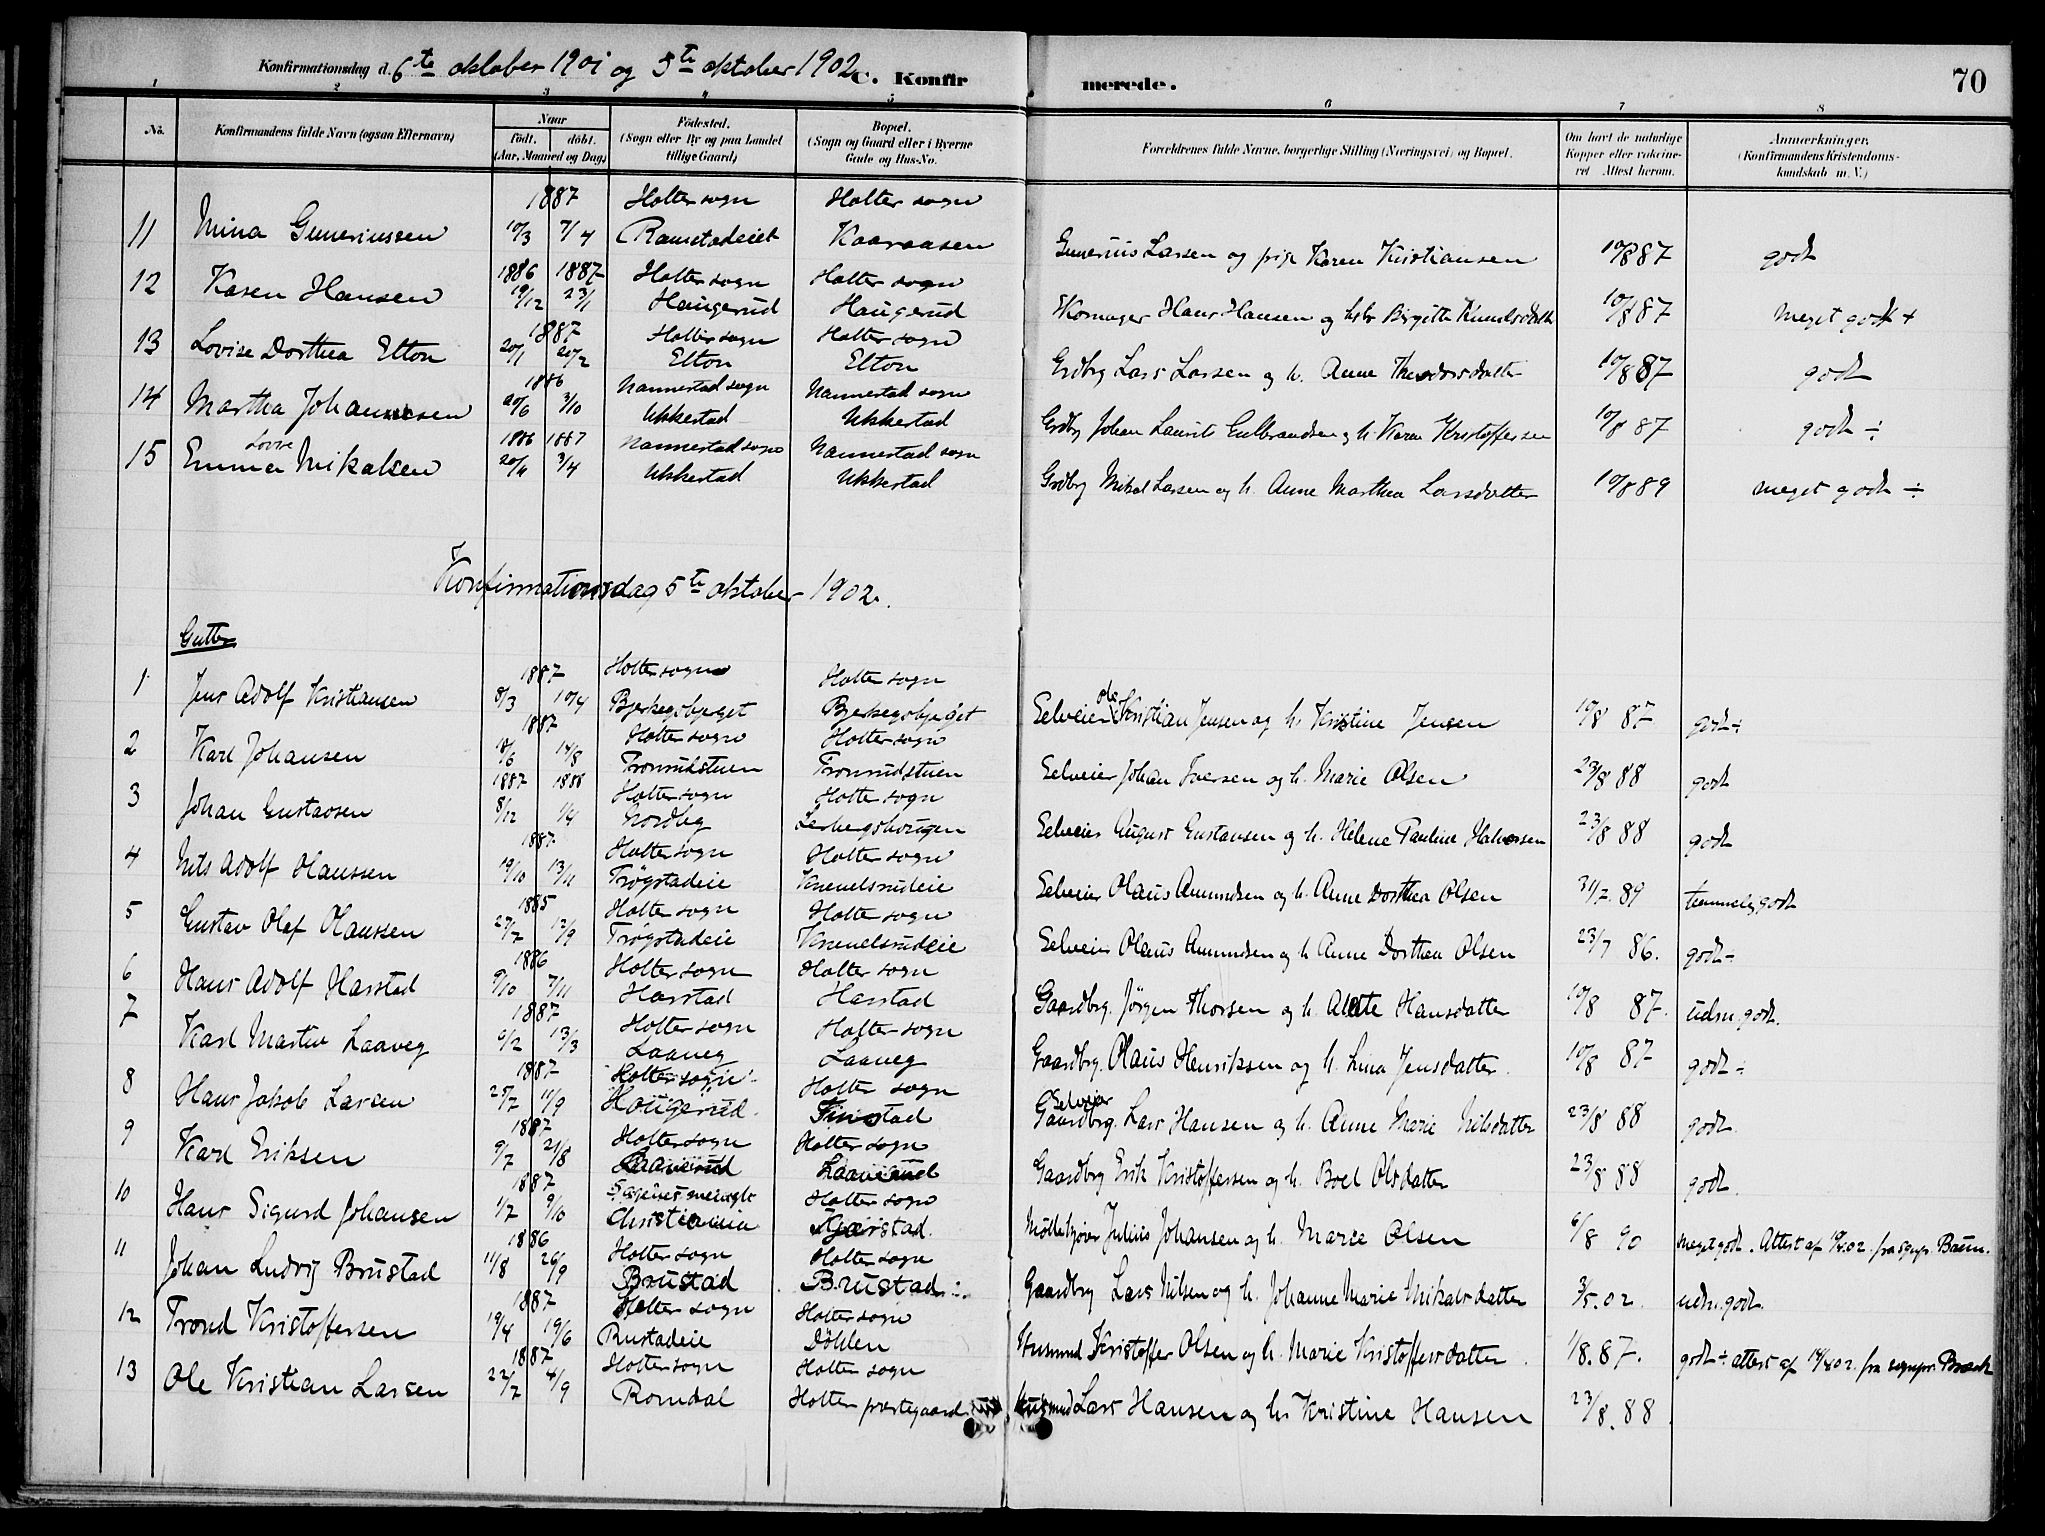 Konfirmationsdag d. 6te oktober 1901 og 5te oktober 1902 C. Konfirmerede. 70
1 2 3 4 5 6 7 8
No. Konfirmandens fulde Navn (ogsaa Efternavn) Naar født. døbt. (Aar, Maaned og Dag) Fødested. (Sogn eller By og paa Landet tillige Gaard) Bopæl. (Sogn og Gaard eller i Byerne Gade og Hus-No. Forældrenes fulde Navne, borgerlige Stilling (Næringsvei) og Bopæl. Om havt de naturlige Kopper eller vaccineret Attest herom. Anmærkninger. (Konfirmandens Kristendomskundskab m. V.)
1887 Holter sogn Holter sogn
11 Mina Gunerinssen 10/3 7/4 Ramstadeiet Kaaraasen Gunerius Larsen og pige Karen Kristiansen 10/8 87 godt
1886 1887 Holter sogn Holter sogn
12 Karen Hansen 19/12 23/1 Haugerud Haugerud Skomager Hans Hansen og hstr Birgitte Knudsdatter 10/8 87 meget godt +
1887 Holter sogn Holter sogn
13 Lovise Dorthea Elton 20/1 20/2 Elton Elton Grdbrg Lars Larsen og h. Anne Theodorsdatter 10/8 87 godt
1886 Nannestad sogn Nannestad sogn
14 Marthea Johannesen 20/6 3/10 Ukkestad Ukkestad Grdbrg Johan Laurits Gulbrandsen og h. Karen Kristoffersen 10/8 87 godt ÷
1886 1887 Nannestad sogn Nannestad sogn
15 Emma Lovise Mikalsen 20/11 3/4 Ukkestad Ukkestad Grdbrg Mikal Larsen og h. Anne Marthea Larsdatter 10/8 89 meget godt ÷
Konfirmationsdag 5te oktober 1902.
Gutter
1887 Holter sogn Holter sogn
1 Jens Adolf Kristiansen 8/3 10/4 Bjerkegsbjeget Bjerkegsbjeget Selveier Ole Kristian Jensen og h. Kristine Jensen 10/8 87 godt ÷
1887 Holter sogn Holter sogn
2 Karl Johansen 18/6 14/8 Tronrudstuen Tronrudstuen Selveier Johan Iversen og h. Marie Olsen 23/8 88 godt
1887 1888 Holter sogn Holter sogn
3 Johan Gustavsen 8/12 1/4 Nordby Lerbergshougen Selveier August Gustavsen og h. Helene Pauline Halvorsen 23/8 88 godt
1887 Holter sogn Holter sogn
4 Nils Adolf Olaussen 19/10 13/11 Trøgstadeie Knenelsrudeie Selveier Olaus Amundsen og h. Anne Dorthea Olsen 31/7 89 temmelig godt
1885 Holter sogn Holter sogn
5 Gustav Olaf Olaussen 27/7 13/9 Trøgstadeie Knenelsrudeie Selveier Olaus Amundsen og h. Anne Dorthea Olsen 23/7 86. godt ÷
1886 Holter sogn Holter sogn
6 Hans Adolf Harstad 9/10 7/11 Harstad Harstad Gaardbrg. Jørgen Thorsen og h. Alette Hansdatter 10/8 87. udm. godt.
1887 Holter sogn Holter sogn
7 Karl Martin Laaveg 6/2 13/3 Laaveg Laaveg Gaardbrg. Olaus Henriksen og h. Lina Jensdatter. 10/8 87 godt ÷
1887 Holter sogn Holter sogn
8 Hans Jakob Larsen 25/7 11/9 Hougerud Finstad Selveier Gaardbrg. Lars Hansen og h. Anne Marie Nilsdatter 23/8 88 godt.
1887 Holter sogn Holter sogn
9 Karl Eriksen 9/7 21/8 Laaverud Laaverud Gaardbrg Erik Kristoffersen og h. Boel Olsdatter 23/8 88 godt.
1887 Holter sogn
10 Hans Sigurd Johansen 1/7 9/10 Christiania Gjerstad. Møllekjører Julius Johansen og h. Marie Olsen 6/8 90 meget godt. Attest af 19/4 02. fra sgnpr. Bruun.
1886 Holter sogn Holter sogn
11 Johan Ludvig Brustad 11/8 26/9 Brustad Brustad Gaardbrg Lars Nilsen og h. Johanne Marie Mikalsdatter 3/5. 02. udm. godt.
1887 Holter sogn Holter sogn
12 Trond Kristoffersen 19/4 19/6 Rustadeie Döhlen Husmand Kristoffer Olsen og h. Marie Kristoffersdatter. 1/8. 87. godt ÷ attest af 14/4 02. fra sognpr.
1887 Holter sogn Holter sogn
13 Ole Kristian Larsen 22/7 4/9 Romdal Holter prestegaard Husmd Lars Hansen og h. Kristine Hansen 23/8. 88